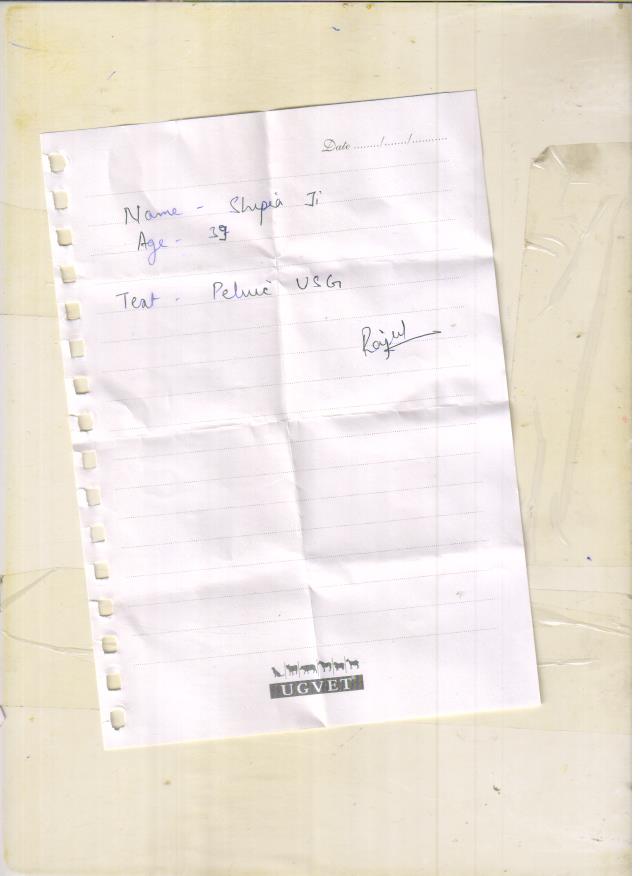 Date ......../......./...........
Name - Shipra Ji
Age - 39
Test - Pelvic USG
UGVET